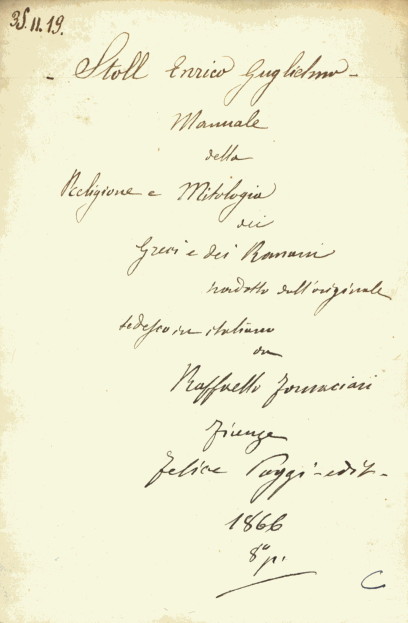 35.11.19.
- Stoll Enrico Guglielmo -
Manuale
della
Religione e Mitologia
dei
Greci e dei Romani
tradotto dall'originale
tedesco in italiano
da
Raffaello Fornaciari
Firenze
Felice Paggi - edit -
1866
8º p.
C